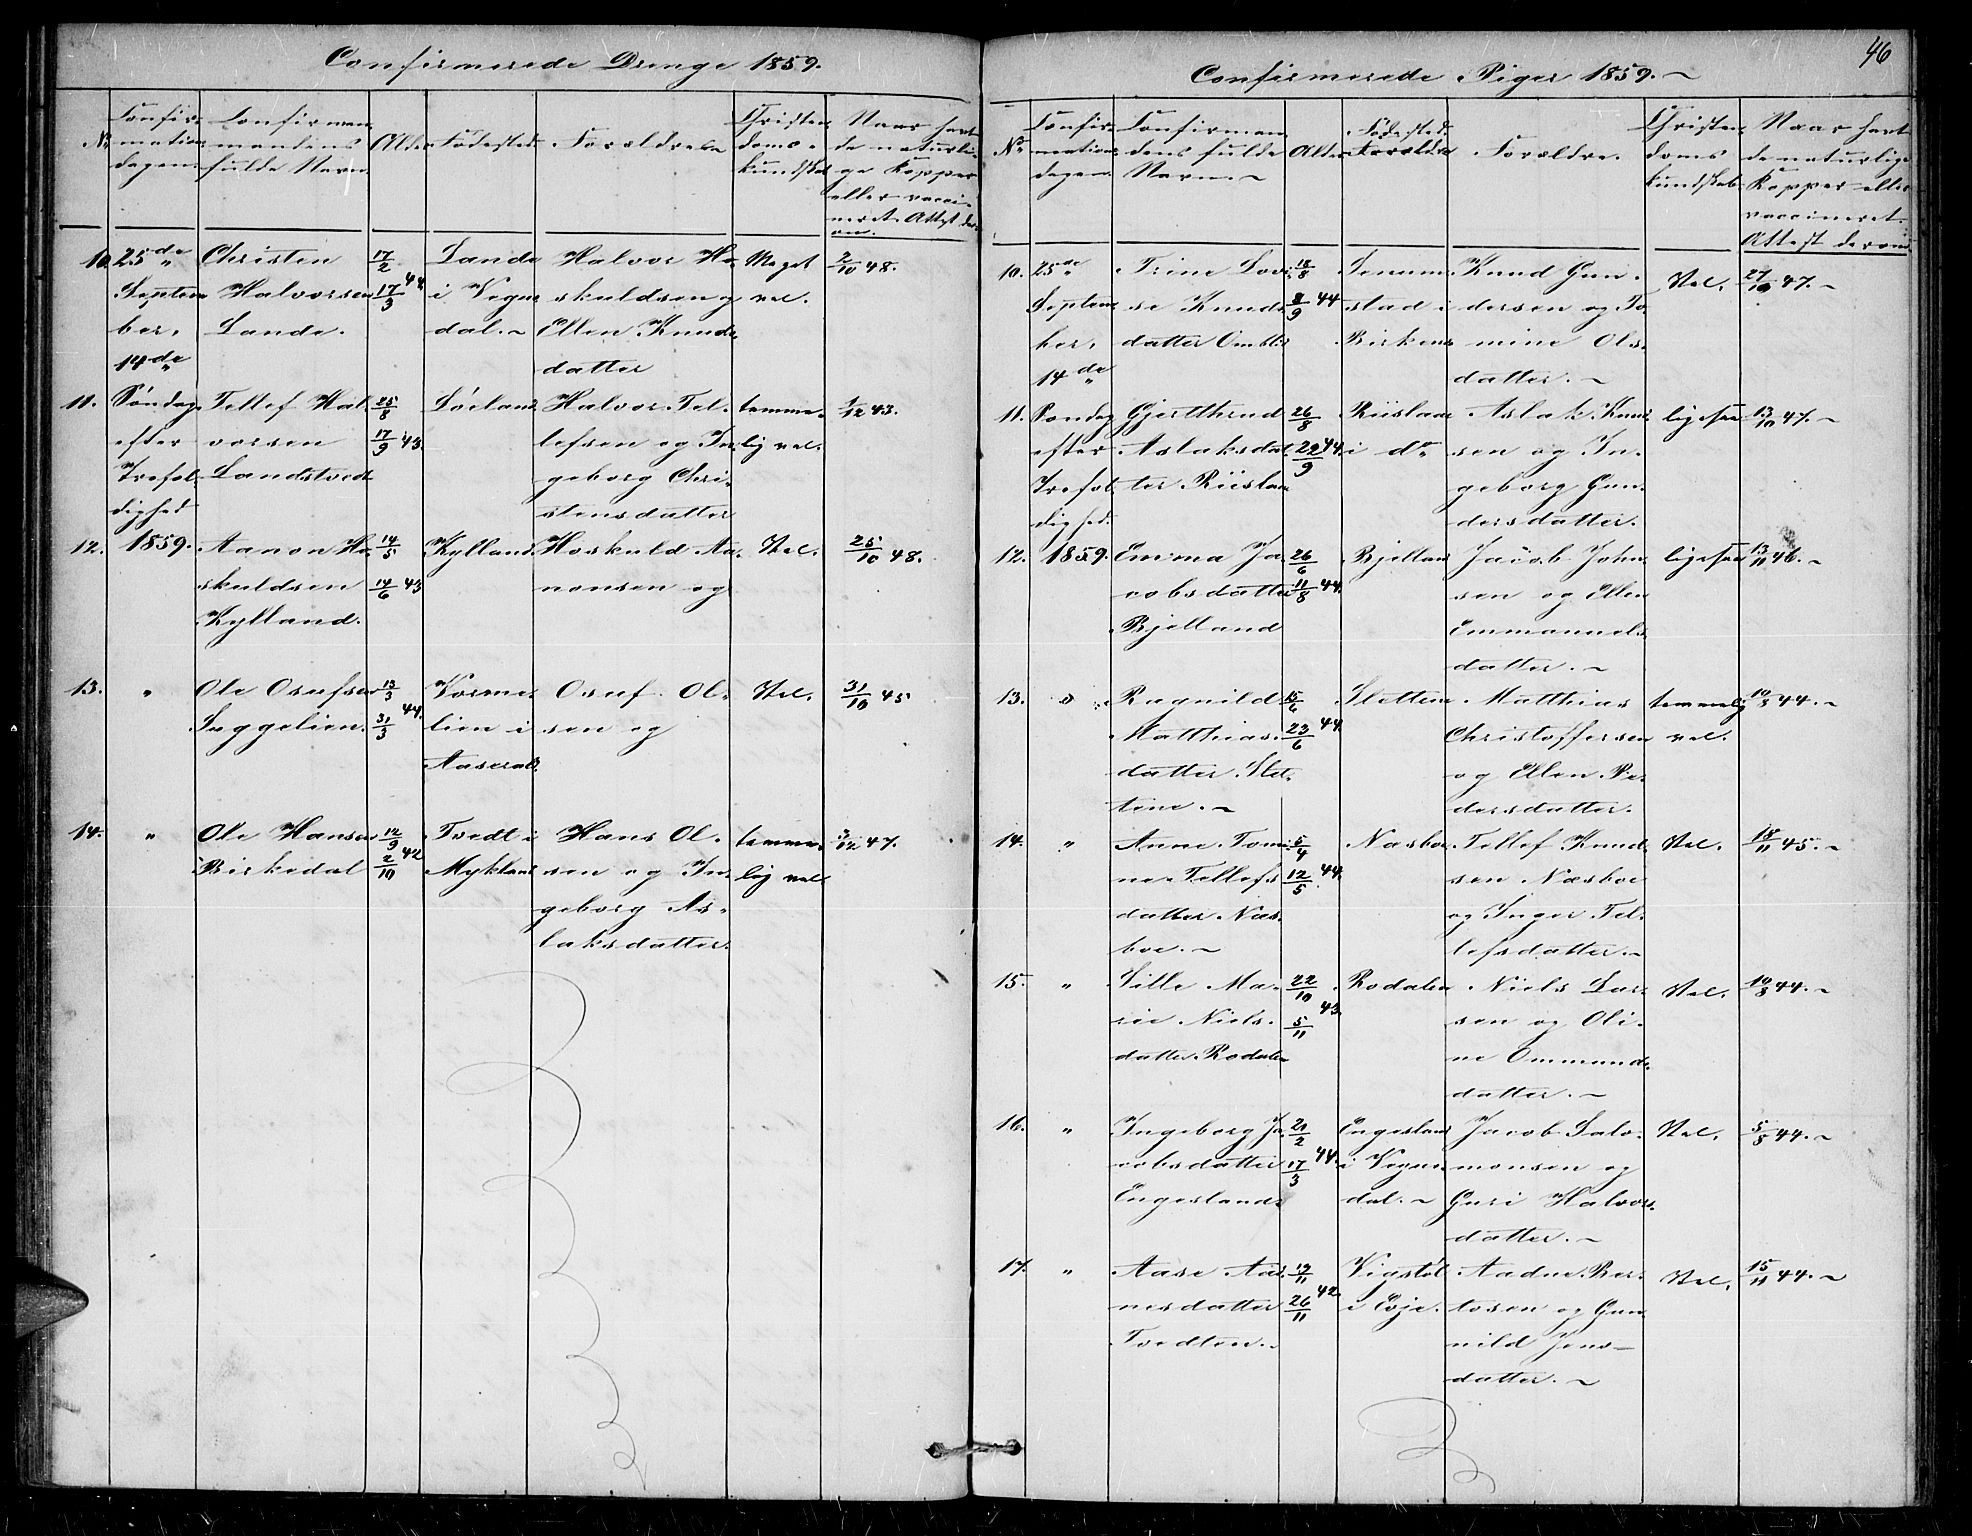 46
Confirmerede Drenge 1859.
No
Confir-
mations
dagen.
Confirman-
mantens
fulde Navn.
Alder
Födested
Forældre
Christen-
doms-
kundskab
Naar havt
de naturli-
ge Kopper
eller vacci-
neret. Attest der-
om.
10.
25de
Septem-
ber,
14de
Christen
Halvorsen
Lande.
17/2
17/3 44.
Lande
i Vegus-
dal.
Halvor Ho-
skuldsen og
Ellen Knuds-
datter
Meget
vel.
2/10 48.
11.
Söndag
efter
Trefol-
dighed
Tellef Hal-
vorsen
Landstvedt
25/8
17/9 43.
Löeland
Halvor Tel-
lefsen og In-
geborg Chri-
stensdatter
temme-
lig vel.
1/12 43.
12.
1859.
Aanon Ho-
skuldsen
Kylland.
14/5
14/6 43
Kylland
Hoskuld Aa-
nonsen og
Vel.
25/10 48.
13.
"
Ole Osufsen
Suggelien.
13/3
31/3 44.
lien i
Aaseral.
Osuf Ol-
sen og
Vel.
31/10 45
14.
"
Ole Hansen
Birkedal
12/9
2/10 42
Tvedt i
Mykland
Hans Ol-
sen og In-
geborg As-
laksdatter.
temme-
lig vel
3/12 47.
Confirmerede Piger 1859.
No
Confir-
mations
dagen.
Confirman-
dens fulde
Navn.
Alder
Födested.
Forældre
Forældre.
Christen-
doms
kundskab
Naar havt
de naturlige
Kopper eller
vaccineret.
Attest derom.
10.
25de
Septem-
ber,
14de
Trine Lovi-
se Knuds-
datter Omlid
18/8
8/9 44
Senum-
stad i
Birkenes
Knud Gun-
dersen og To-
mine Ols-
datter.
Vel.
27/10 47.
11.
Söndag
efter
Trefol-
dighed.
Gjerthrud
Aslaksdat-
ter Riisland
26/8
22/9 44.
Riisland
i do
Aslak Knud-
sen og In-
geborg Gun-
dersdatter.
ligesaa
13/10 47.
12.
1859.
Emma Ja-
cobsdatter
Bjelland
26/6
11/8 44.
Bjelland
Jacob John-
sen og Ellen
Emmanuels-
datter.
ligesaa
13/11 46.
13.
"
Ragnild
Matthias-
datter Slet-
tene.
15/6
23/6 44.
Slettene
Matthias
Christoffersen
og Ellen Pe-
dersdatter.
temmelig
vel.
10/8 44.
14.
"
Anne Tomi-
ne Tellefs-
datter Næs-
boe.
5/4
12/5 44.
Næsboe
Tellef Knud-
sen Næsboe
og Inger Tel-
lefsdatter.
Vel.
18/11 45.
15.
"
Sille Ma-
rie Niels-
datter Rodalen
22/10
5/11 43.
Rodalen
Niels Lar-
sen og Oli-
ne Ommunds-
datter.
Vel.
10/8 44.
16.
"
Ingeborg Ja-
cobsdatter
Engesland.
21/2
17/3 44.
Engesland
i Vegus-
dal.
Jacob Salo-
monsen og
Guri Halvors-
datter.
Vel.
5/8 44.
17.
"
Aase Aad-
nesdatter
Tvedten.
19/11
26/11 42.
Vigstöl
i Evje.
Aadne Ber-
tosen og Gun-
nild Jens-
datter.
Vel.
15/11 44.